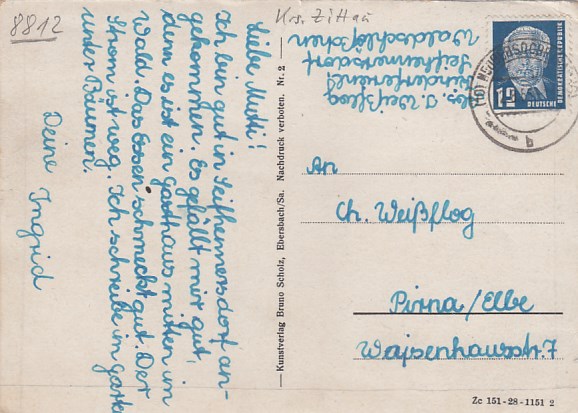 8812
Liebe Mutti!
Ich bin gut in Seifhennersdorf an-
gekommen. Es gefällt mir gut,
denn es ist ein Gasthaus mitten im
Wald. Das Essen schmeckt gut. Der
Strom ist weg. Ich schreibe im Garten
unter Bäumen.
Deine Ingrid
Krs. Zittau
Weißflog
Kinderferienl.
Seifhennersdorf
Waldschlößchen
DEUTSCHE
DEMOKRATISCHE REPUBLIK
12
An
Ch. Weißflog
Pirna/Elbe
Waisenhausstr. 7
— Kunstverlag Bruno Scholz, Ebersbach/Sa. Nachdruck verboten. Nr. 2 —
Zc 151-28-1151 2